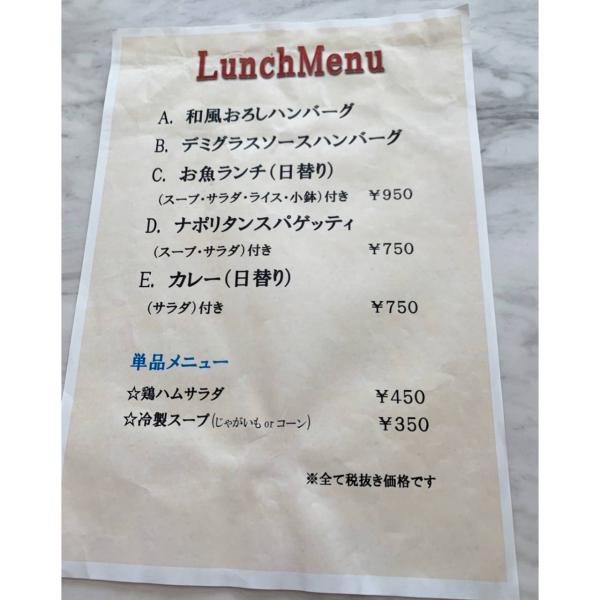 LunchMenu
A. 和風おろしハンバーグ
B. デミグラスソースハンバーグ
C. お魚ランチ(日替り)
(スープ・サラダ・ライス・小鉢)付き ￥950
D. ナポリタンスパゲッティ
(スープ・サラダ)付き ￥750
E. カレー(日替り)
(サラダ)付き ￥750
単品メニュー
☆鶏ハムサラダ ￥450
☆冷製スープ(じゃがいも or コーン) ￥350
※全て税抜き価格です